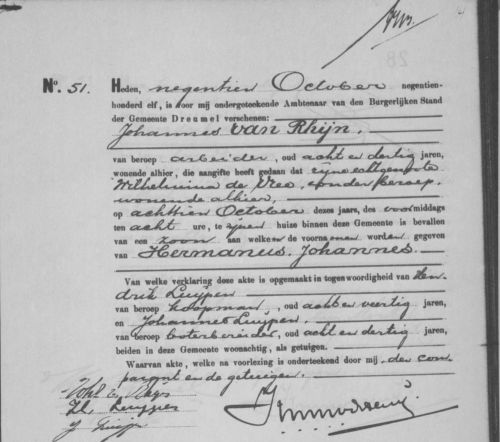 28
No. 51. Heden, negentien October negentien-
honderd elf, is voor mij ondergeteekende Ambtenaar van den Burgerlijken Stand
der Gemeente Dreumel verschenen:
Johannes van Rhijn,
van beroep arbeider, oud acht en dertig jaren,
wonende alhier, die aangifte heeft gedaan dat zijne echtgenoote
Wilhelmina de Vree, zonder beroep,
wonende alhier,
op achttien October dezes jaars, des voormiddags
ten acht ure, te zijnen huize binnen deze Gemeente is bevallen
van een zoon aan welken de voornamen worden gegeven
van Hermanus Johannes.
Van welke verklaring deze akte is opgemaakt in tegenwoordigheid van Hen-
drik Luijpen
van beroep koopman, oud acht en veertig jaren,
en Johannes Luijpen,
van beroep boterbereider, oud acht en dertig jaren,
beiden in deze Gemeente woonachtig, als getuigen.
Waarvan akte, welke na voorlezing is onderteekend door mij, den com-
parant en de getuigen.